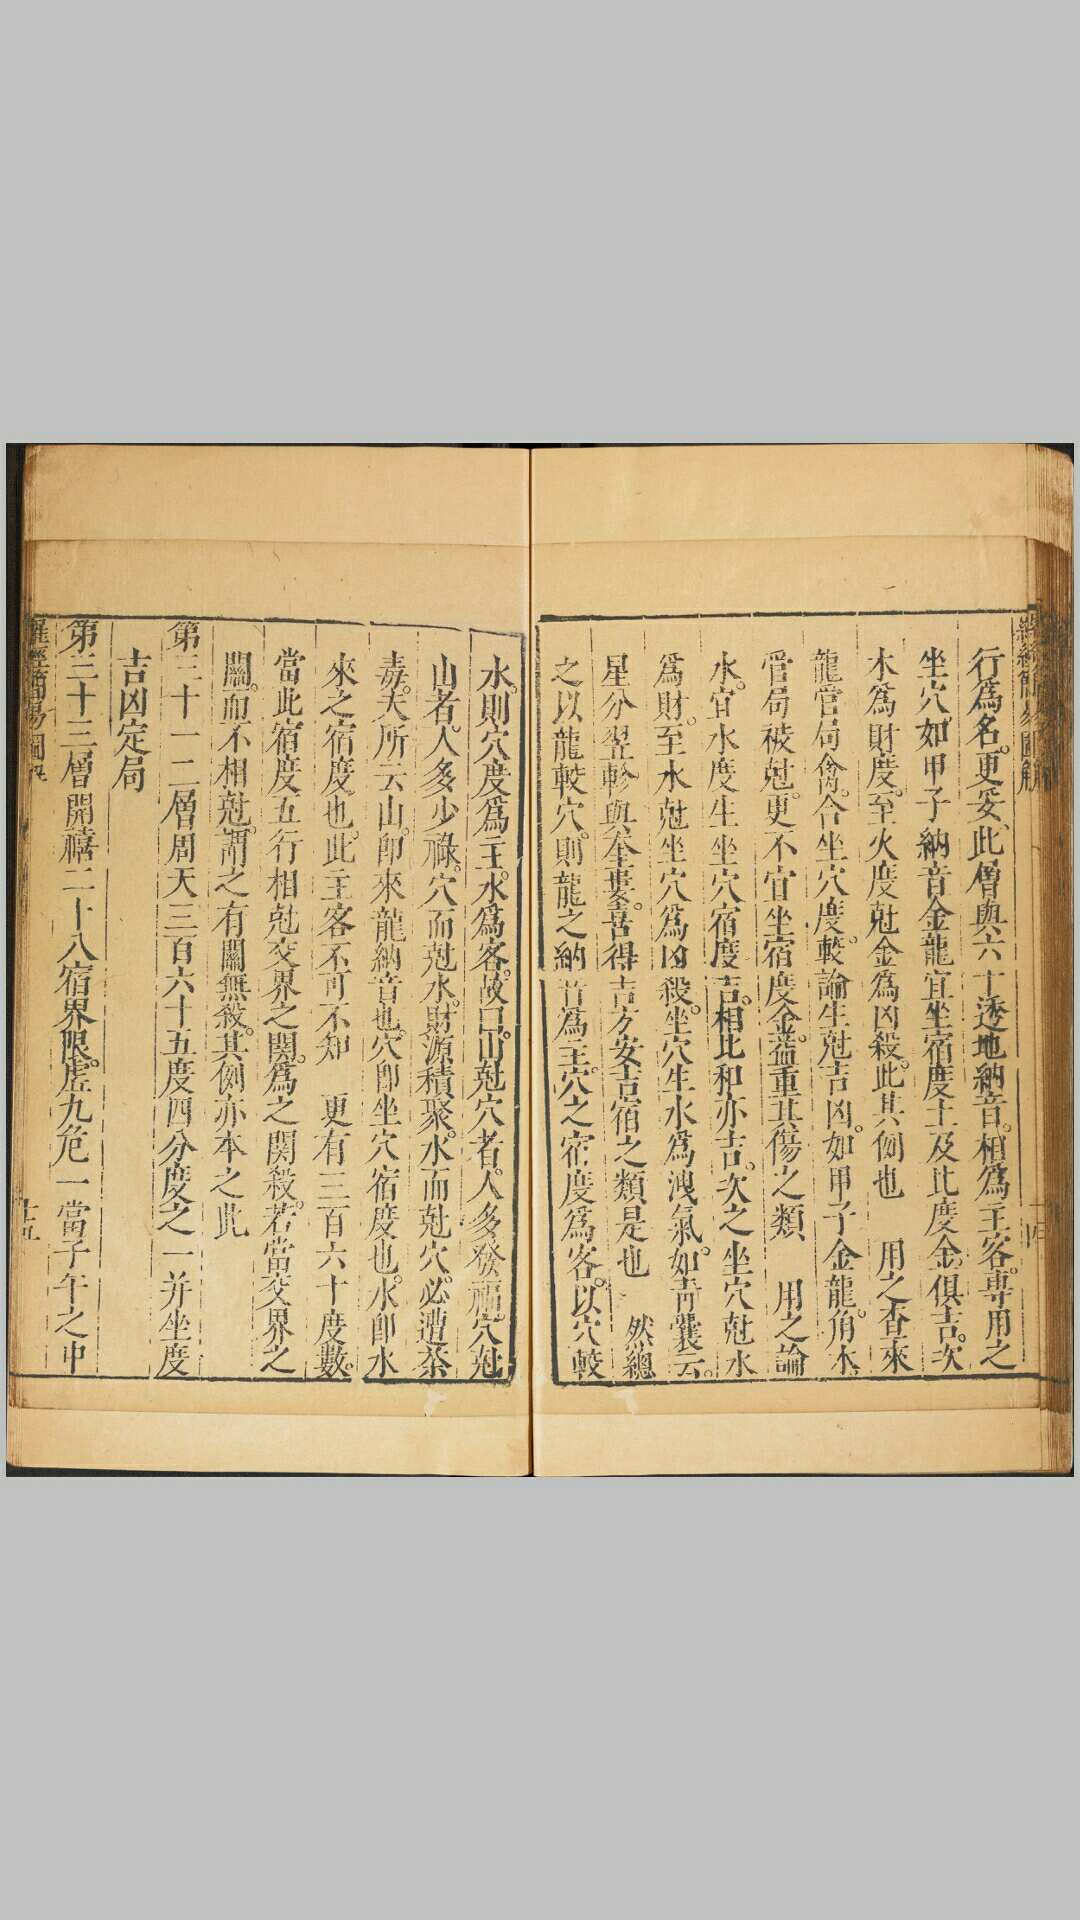 行爲名。更妥、此層與六十透地納音。相爲主客。専用之
坐穴如甲子納音金龍宜坐宿度土及此度金俱吉。次
木爲財度。至火度尅金爲凶殺。此其例也 用之査來
龍管局禽。合坐穴度。較論生尅吉凶。如甲子金龍。角木。
管局被尅。更不宜坐宿度金。葢重其傷之類 用之論
水。宜水度生坐穴宿度吉。相比和亦吉。次之坐穴尅水
爲財。至水尅坐穴爲凶殺。坐穴生水爲洩氣。如靑囊云。
星分翌軫與奎婁。喜得吉方安吉宿之類是也 然總
之以龍較穴。則龍之納音爲主。穴之宿度爲客。以穴較
水。則穴度爲主。水爲客。故曰。山尅穴者。人多發福。穴尅
山者。人多少祿。穴而尅水。財源積聚。水而尅穴。必遭荼
毒。夫所云山。卽來龍納音也。穴卽坐穴宿度也。水卽水
來之宿度也。此主客不可不知 更有三百六十度數。
當此宿度五行相尅交界之関。爲之関殺。若當交界之
關。而不相尅。謂之有關無殺。其例亦本之此
第三十一二層周天三百六十五度四分度之一并坐度
吉凶定局
第三十三層開禧二十八宿界限。虛九危一當子午之中
羅經簡易圖解
十五